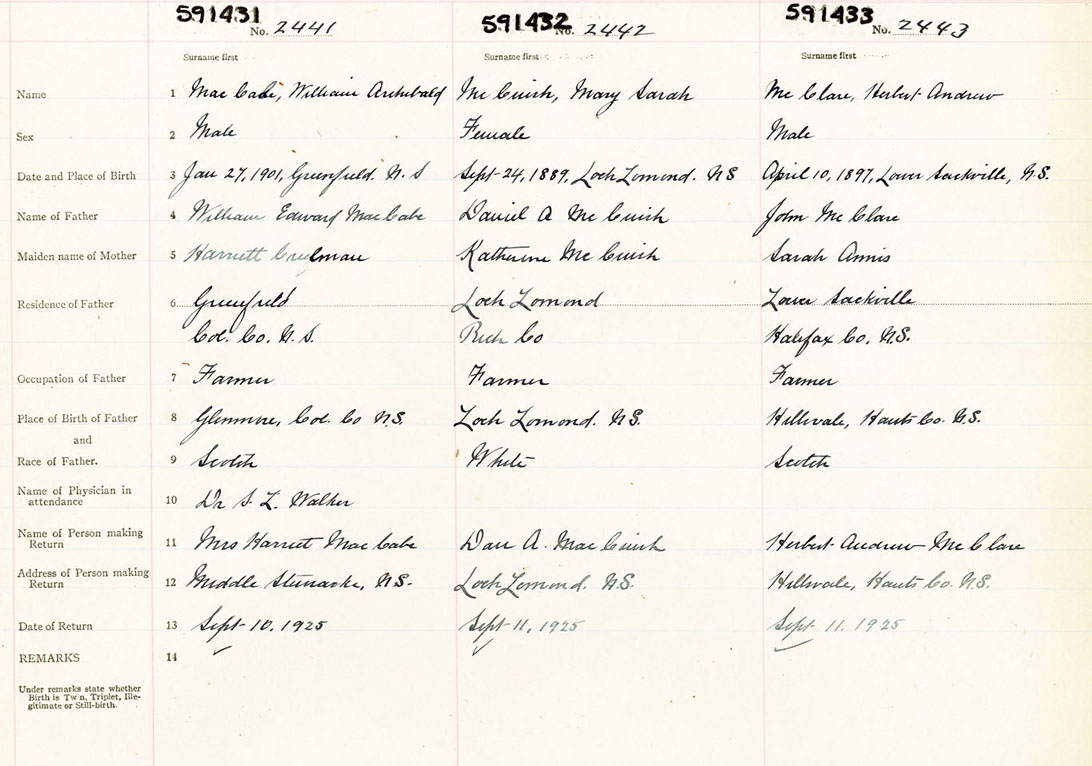 591431 591432 591433
No. 2441 No. 2442 No. 2443
Surname first Surname first Surname first
Name 1 Mac Cabe, William Archibald Mc Cuish, Mary Sarah Mc Clare, Herbert Andrew
Sex 2 Male Female Male
Date and Place of Birth 3 Jan 27, 1901, Greenfield. N. S Sept-24, 1889, Loch Lomond. NS April 10, 1897, Lower Sackville, N.S.
Name of Father 4 William Edward MacCabe Daniel A Mc Cuish John Mc Clare
Maiden name of Mother 5 Harriett Creelman Katherine Mc Cuish Sarah Annis
Residence of Father 6 Greenfield Loch Lomond Lower Sackville
Col. Co. N. S. Rich Co Halifax Co. N.S.
Occupation of Father 7 Farmer Farmer Farmer
Place of Birth of Father 8 Glenmore, Col. Co N.S. Loch Lomond. N.S. Hillsvale, Hants Co. N.S.
and
Race of Father. 9 Scotch White Scotch
Name of Physician in
attendance 10 Dr S. L. Walker
Name of Person making
Return 11 Mrs Harriett Mac Cabe Dan A. Mac Cuish Herbert Andrew Mc Clare
Address of Person making
Return 12 Middle Stewiacke, N.S. Loch Lomond. N.S. Hillsvale, Hants Co. N.S.
Date of Return 13 Sept-10. 1925 Sept 11, 1925 Sept 11. 1925
REMARKS 14
Under remarks state whether
Birth is Twin, Triplet, Ille-
gitimate or Still-birth.